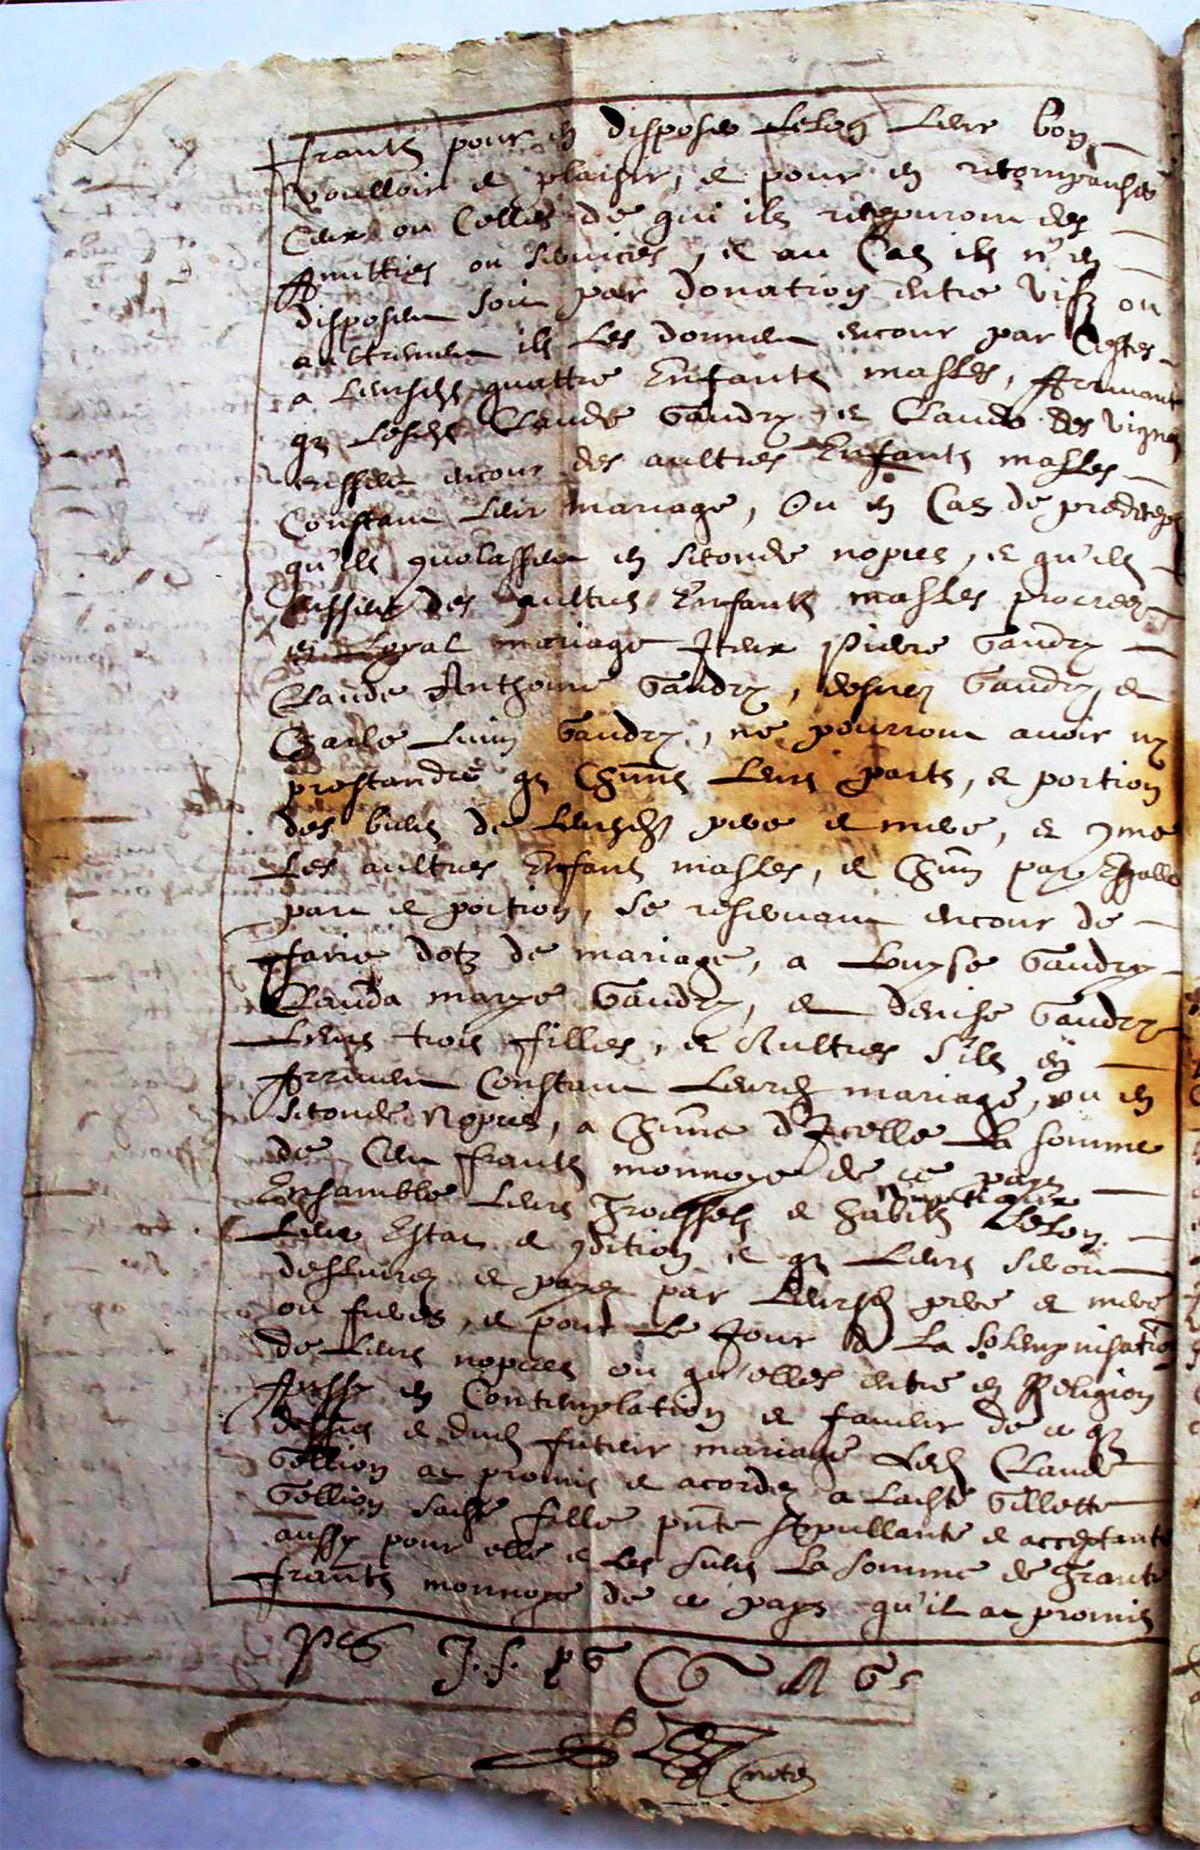 frantz pour en disposer selon leur bon
voulloir et plaisir, et pour en recompanser
ceux ou celles de qui ilz recepuront des
Amitties ou services, et au cas ilz n'en
disposent soit par donation entre vifz ou
aultrement ilz les donnent encour par cestes
a leursdz quattre Enfantz masles, Arrivant
qz lesdz Claude Gaudry, et Claude des vignes
eussent encour des aultres Enfantz masles
Constant leur mariage, Ou en Cas de predeces
qu'ilz 9volassent en seconde nopces, et qu'ilz
eussent des aultres Enfantz masles procreez
en Loyal mariage Iceux Pierre Gaudry
Claude Anthoine Gaudry, Gaudry, et
Charle Gaudry, ne pourront avoir ny
prestandre qz Chune leurs partz, et portion
des biens de leursdz pere et mere, et 9me
Les aultres Enfant masles, et Chun par Egalle
part et portion, se reservant encour de
faire dotz de mariage, a Louyse Gaudry
Clauda marye Gaudry, et denise Gaudry
Leurs trois filles, et Aultres s'ilz en
Arrivent Constant leurdz mariage, ou en
seconde Nopces, a Chune d'Icelle la somme
de Cent frantz monnoye de ce pays
Ensamble leurs Troussel et habitz nuptiaux selon
Leur Estat et 9dition et qz leurs seront
deslivrez et payez par leursdz pere et mere
ou , et pour le Jour de la solempnisation
de leurs nopces ou qu'elles entre en Religion
Aussy en Contemplation et faveur de ce qz
dessus et dudz futeur mariage ledz Claude
Gellion at promis et acordez a ladite Gillette
Gellion sadite fille pnte stipullante et acceptante
aussy pour elle et les siens la somme de Trante
frantz monnoye de ce pays qu'il at promis
J. f. p G C G A G